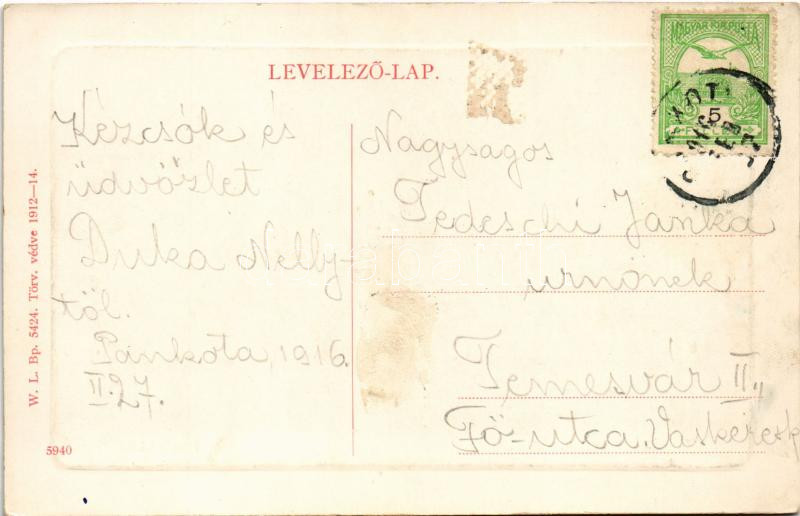 LEVELEZŐ-LAP.
MAGYAR KIR. POSTA
5
Kézcsók és
üdvözlet
Duka Nelly-
től.
Pankota, 1916.
II.27.
Nagyságos
Tedeschi Janka
urnönek
Temesvár II.,
Fő-utca. Vaskeresk
W. L. Bp. 5424. Törv. védve 1912—14.
5940